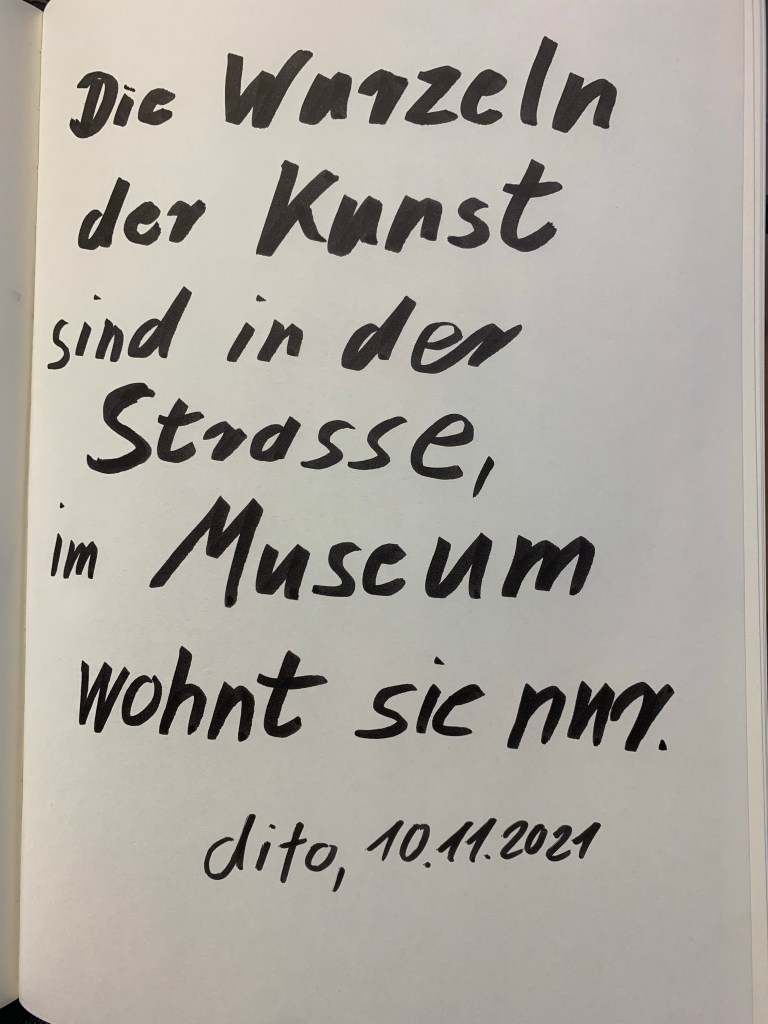 Die Wurzeln
der Kunst
sind in der
Strasse,
im Museum
wohnt sie nur.
dito, 10.11.2021